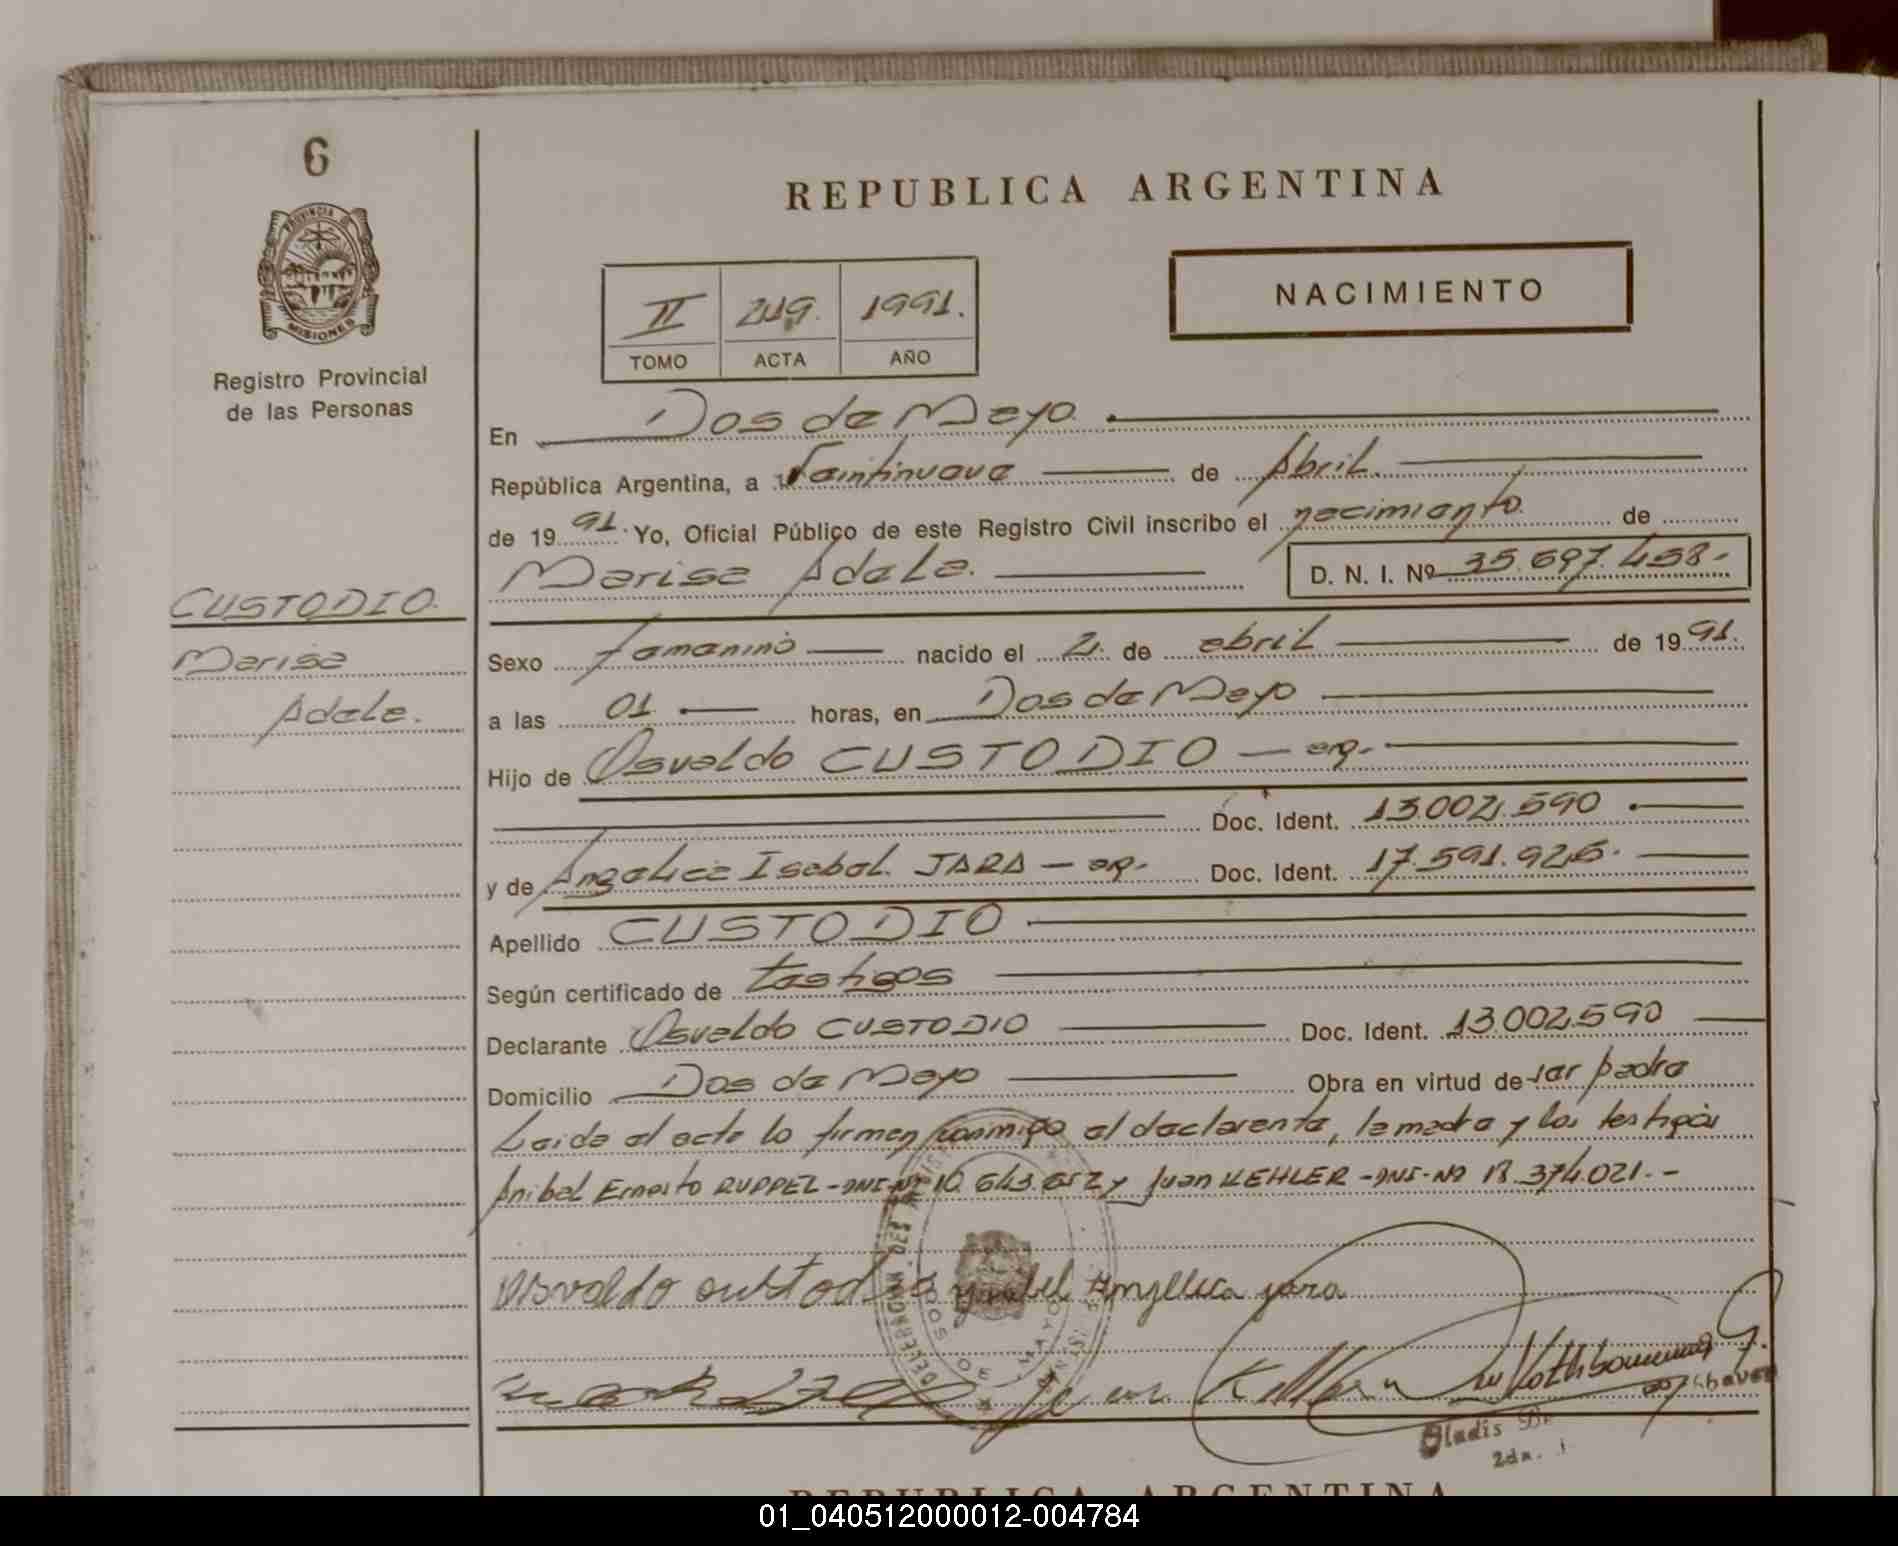 6
PROVINCIA
MISIONES
Registro Provincial
de las Personas
REPUBLICA ARGENTINA
NACIMIENTO
II 1991.
TOMO ACTA AÑO
En Dos de Mayo
República Argentina, a Veintinueve de Abril
de 1991. Yo, Oficial Público de este Registro Civil inscribo el nacimiento de
Marisa Adela. D. N. I. Nº 35.697.458-
CUSTODIO.
Marisa
Adela.
Sexo femenino nacido el 2. de abril de 1991.
a las 01 horas, en Dos de Mayo
Hijo de Osvaldo CUSTODIO - arg.-
Doc. Ident. 13.002.590
y de Angelica Isabel JARA - arg. Doc. Ident. 17.591.926.
Apellido CUSTODIO
Según certificado de testigos
Declarante Osvaldo CUSTODIO Doc. Ident. 13.002.590
Domicilio Dos de Mayo Obra en virtud de ser padre
Leida el acta lo firman conmigo el declarante, la madre y los testigos
Anibal Ernesto RUPPEL-DNI-Nº 10.643.652 y Juan KEHLER-DNI-Nº 18.374.021.-
Osvaldo custodio ysabel Angelica jara
Juan
Gladis
2da.
DOS DE MAYO
REPUBLICA ARGENTINA
01_040512000012-004784